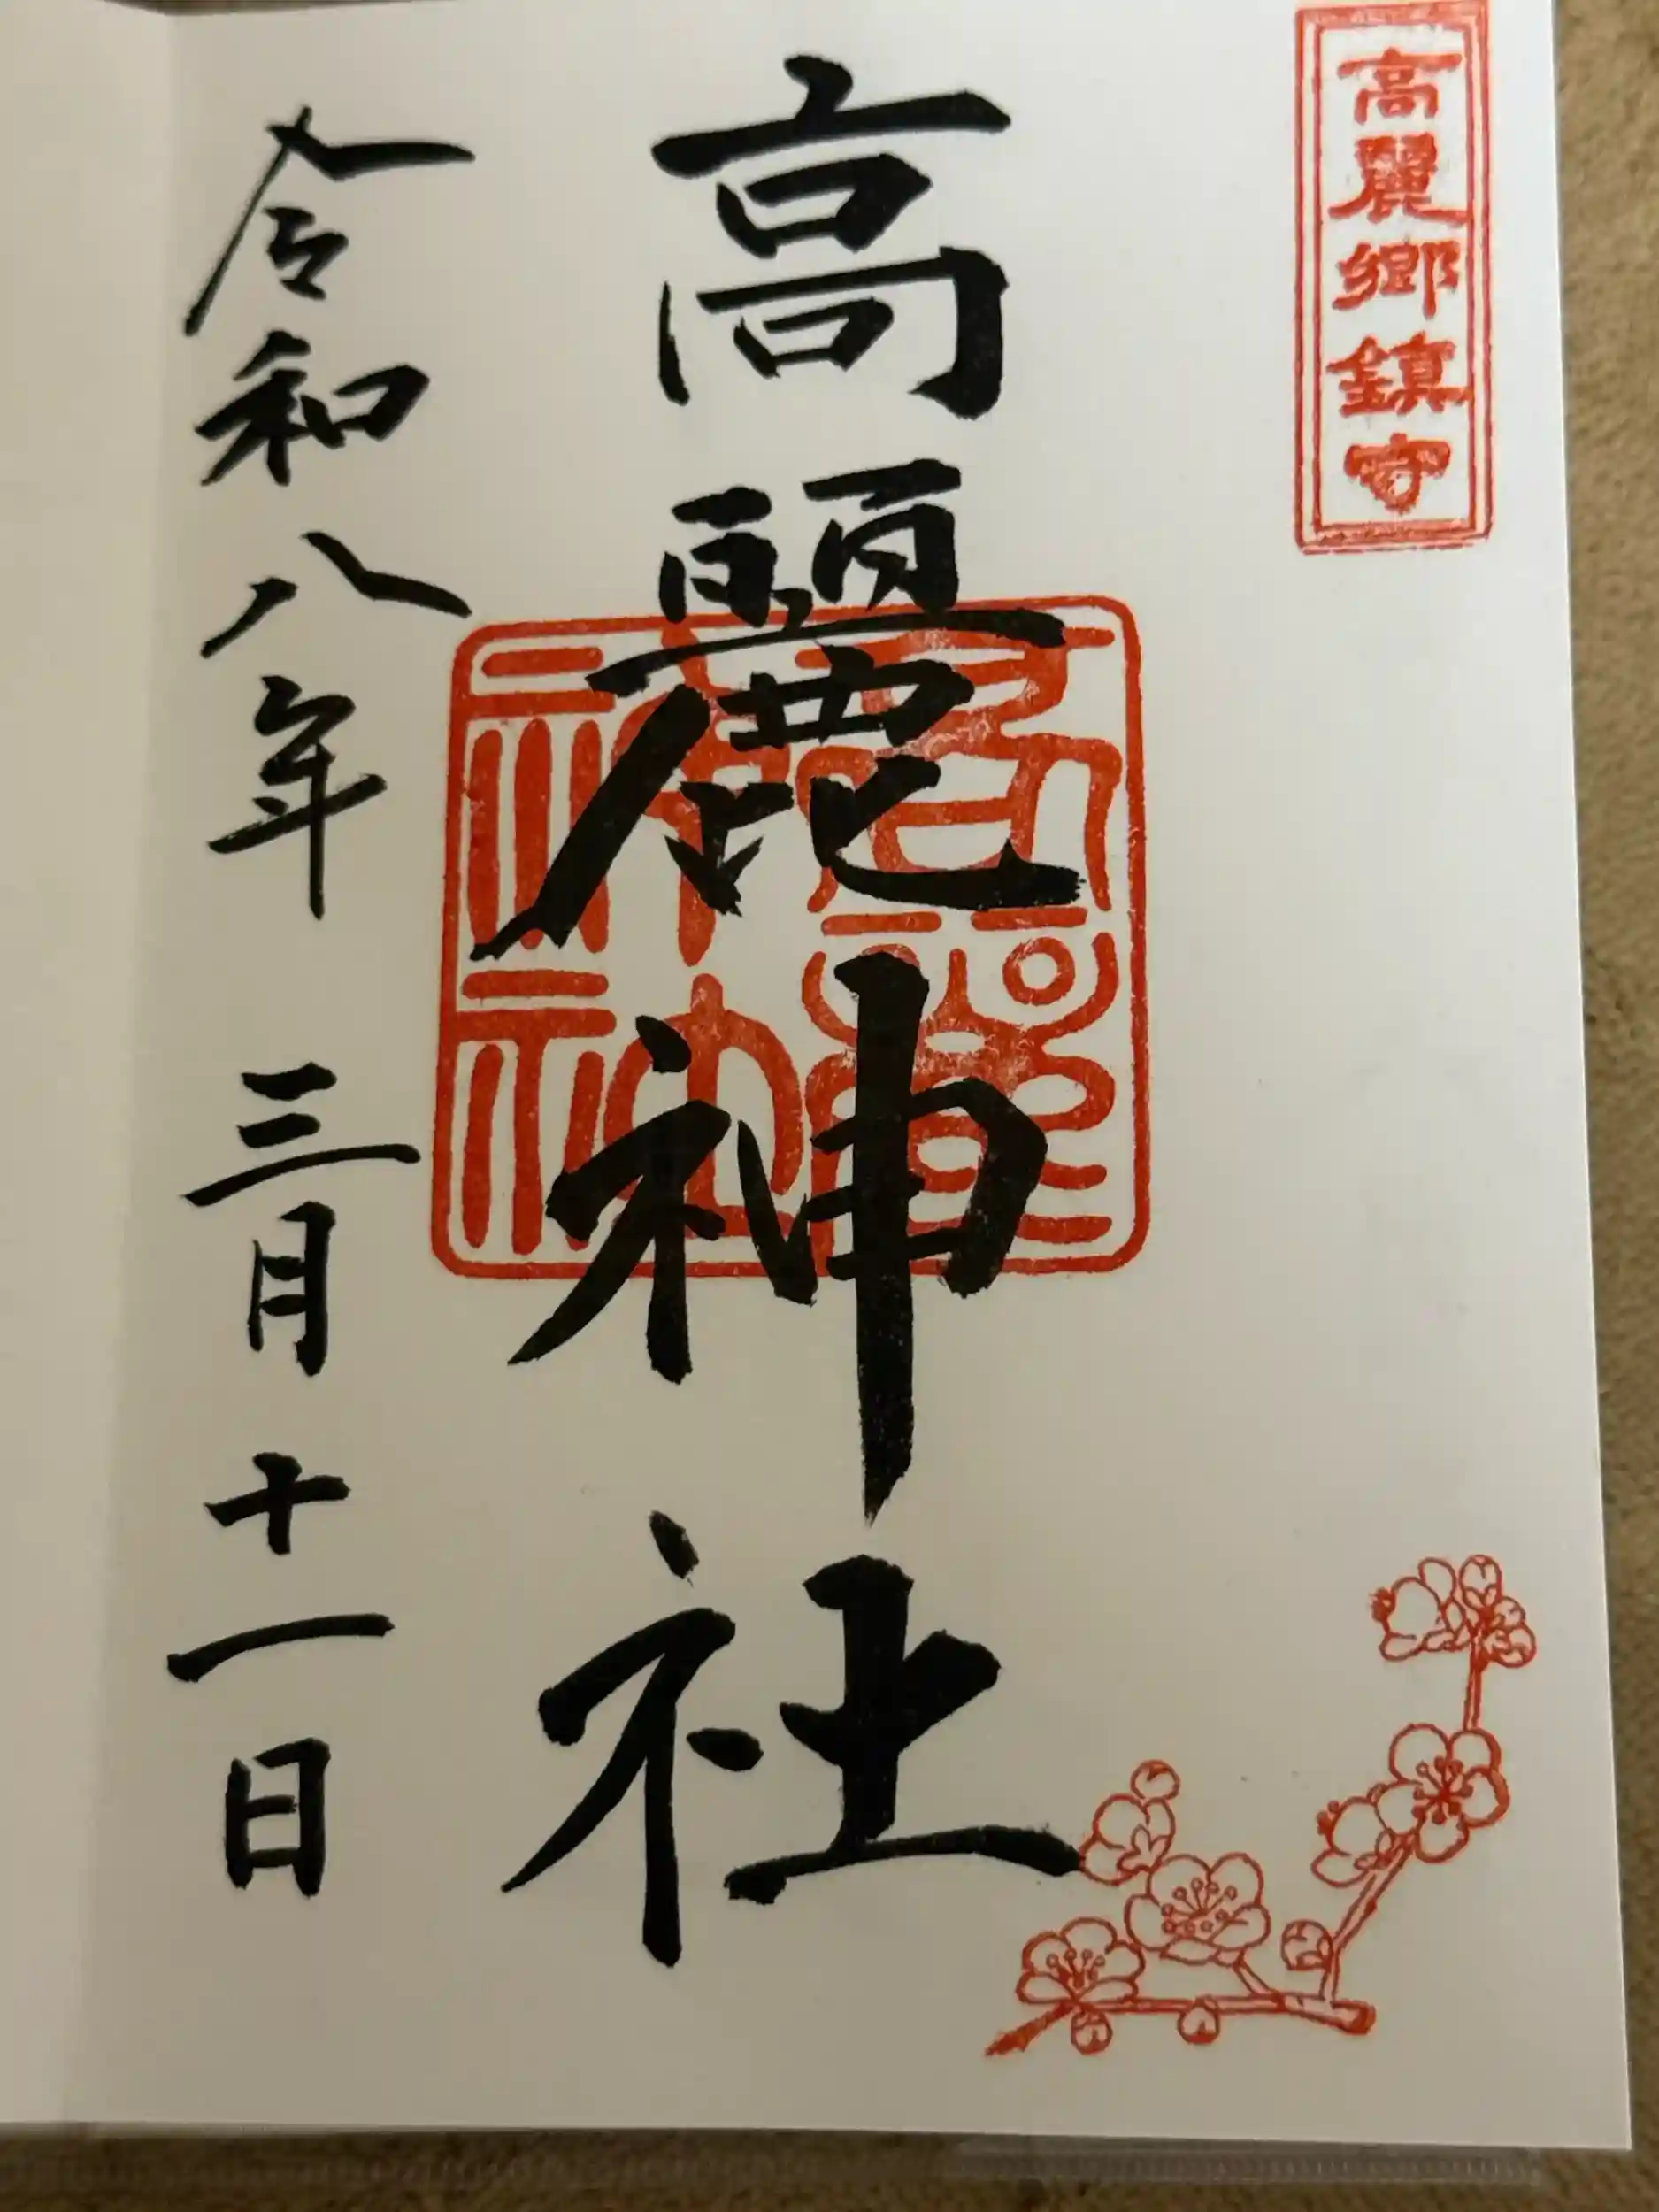 高麗郷鎮守
高麗神社
高麗神社
令和八年 三月十一日